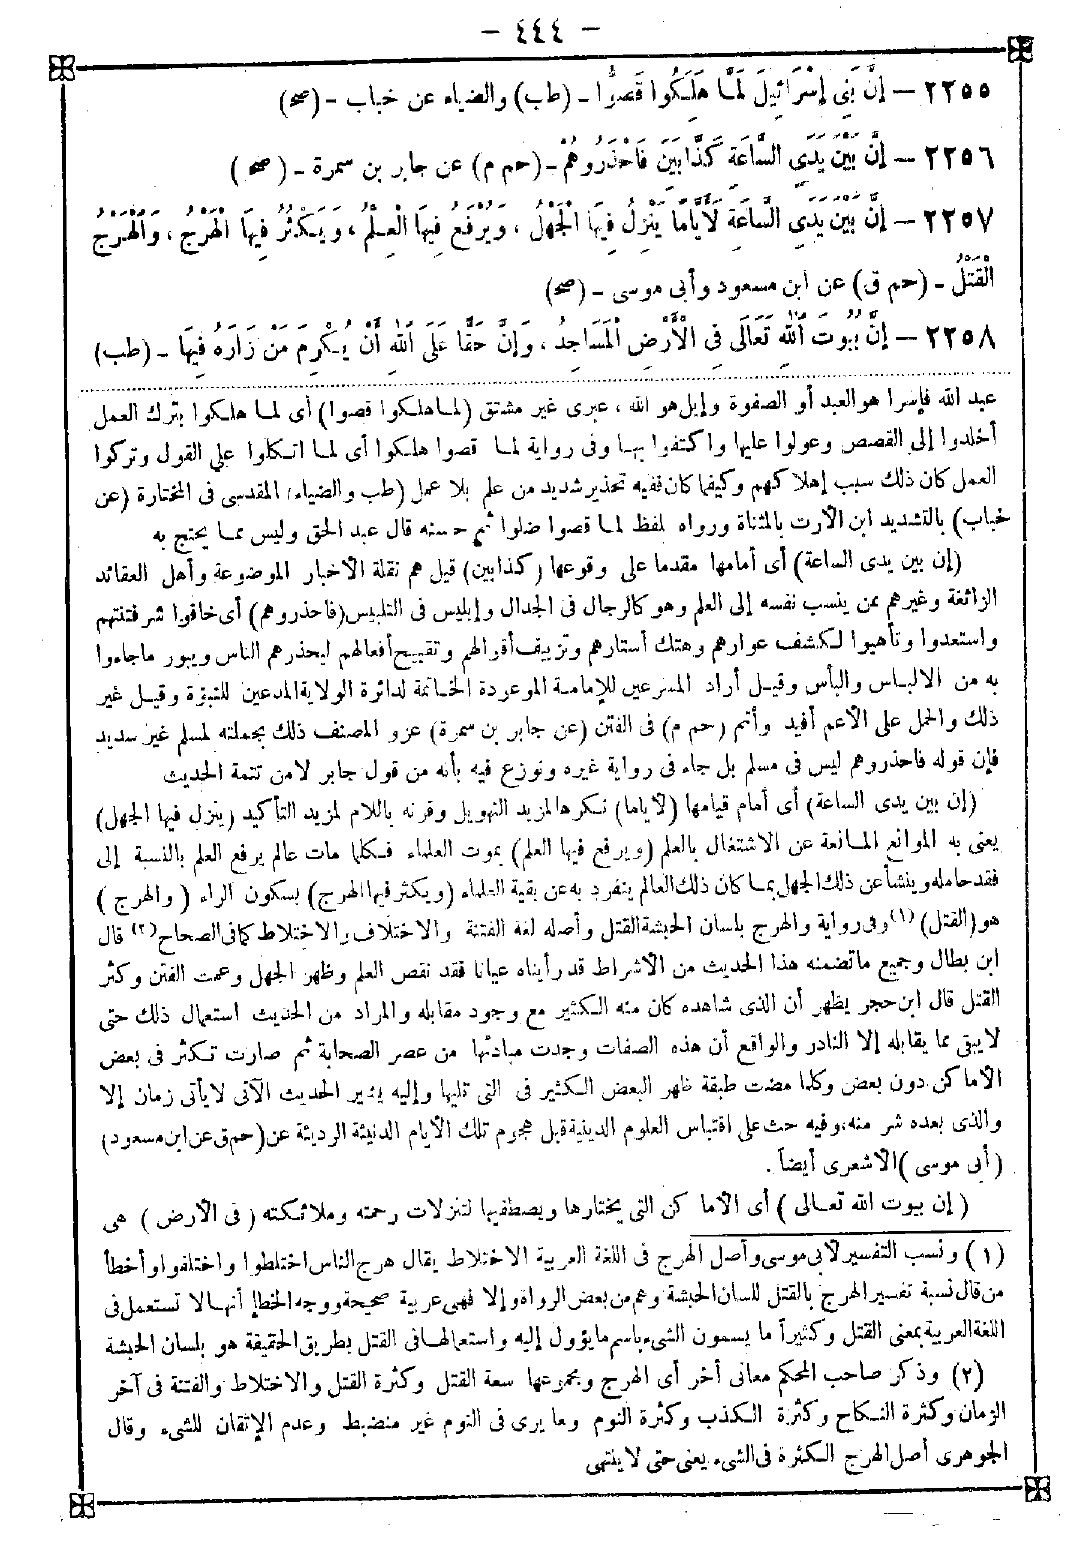 — ٤٤٤ —
٢٢٥٥ — إِنَّ بَنِي إِسْرَائِيلَ لَمَّا هَلَكُوا قَصُّوا - (طب) والضياء عن خباب - (صح)
٢٢٥٦ — إِنَّ بَيْنَ يَدَيِ السَّاعَةِ كَذَّابِينَ فَاحْذَرُوهُمْ - (حم م) عن جابر بن سمرة - (صح)
٢٢٥٧ — إِنَّ بَيْنَ يَدَيِ السَّاعَةِ لَأَيَّامًا يَنْزِلُ فِيهَا الْجَهْلُ ، وَيُرْفَعُ فِيهَا الْعِلْمُ ، وَيَكْثُرُ فِيهَا الْهَرْجُ ، وَالْهَرْجُ
الْقَتْلُ - (حم ق) عن ابن مسعود وأبى موسى - (صح)
٢٢٥٨ — إِنَّ بُيُوتَ اللهِ تَعَالَى فِي الْأَرْضِ الْمَسَاجِدُ ، وَإِنَّ حَقًّا عَلَى اللهِ أَنْ يُكْرِمَ مَنْ زَارَهُ فِيهَا - (طب)
عبد الله فإسرا هو العبد أو الصفوة وإيل هو الله ، عبرى غير مشتق (لما هلكوا قصوا) أى لما هلكوا بترك العمل
أخلدوا إلى القصص وعولوا عليها واكتفوا بها وفى رواية لما قصوا هلكوا أى لما اتكلوا على القول وتركوا
العمل كان ذلك سبب إهلاكهم وكيفما كان ففيه تحذير شديد من علم بلا عمل (طب والضياء) المقدسى فى المختارة (عن
خباب) بالتشديد ابن الأرت بالمثناة ورواه لفظ لما قصوا ضلوا ثم حسنه قال عبد الحق وليس مما يحتج به
(إن بين يدى الساعة) أى أمامها مقدما على وقوعها (كذابين) قيل هم نقلة الأخبار الموضوعة وأهل العقائد
الزائغة وغيرهم ممن ينسب نفسه إلى العلم وهو كالرجال فى الجدال وإبليس فى التلبيس (فاحذروهم) أى خافوا شر فتنتهم
واستعدوا وتأهبوا لكشف عوارهم وهتك أستارهم وتزييف أقوالهم وتقبيح أفعالهم ليحذرهم الناس ويبور ما جاءوا
به من الالباس والبأس وقيل أراد المدعين للإمامة الموعودة الخاتمة لدائرة الولاية المدعين للنبوة وقيل غير
ذلك والحمل على الأعم أفيد وأتم (حم م) فى الفتن (عن جابر بن سمرة) عزو المصنف ذلك بجملته لمسلم غير سديد
فإن قوله فاحذروهم ليس فى مسلم بل جاء فى رواية غيره ونوزع فيه بأنه من قول جابر لا من تتمة الحديث
(إن بين يدى الساعة) أى أمام قيامها (لأياما) نكرها لمزيد التهويل وقرنه باللام لمزيد التأكيد (ينزل فيها الجهل)
يعنى به الموانع المانعة عن الاشتغال بالعلم (ويرفع فيها العلم) بموت العلماء فكلما مات عالم يرفع العلم بالنسبة إلى
فقد حامله وينشأ عن ذلك الجهل بما كان ذلك العالم ينفرد به عن بقية العلماء (ويكثر فيها الهرج) بسكون الراء (والهرج)
هو (القتل) (١) وفى رواية والهرج بلسان الحبشة القتل وأصله لغة الفتنة والاختلاف والاختلاط كما فى الصحاح (٢) قال
ابن بطال وجميع ما تضمنه هذا الحديث من الأشراط قد رأيناه عيانا فقد نقص العلم وظهر الجهل وعمت الفتن وكثر
القتل قال ابن حجر يظهر أن الذى شاهده كان منه الكثير مع وجود مقابله والمراد من الحديث استعمال ذلك حتى
لا يبقى مما يقابله إلا النادر والواقع أن هذه الصفات وجدت مبادئها من عصر الصحابة ثم صارت تكثر فى بعض
الأماكن دون بعض وكلما مضت طبقة ظهر البعض الكثير فى التى تليها وإليه يشير الحديث الآتى لا يأتى زمان إلا
والذى بعده شر منه ، وفيه حث على اقتباس العلوم الدينية قبل هجوم تلك الأيام الدنيئة الرديئة عن (حم ق عن ابن مسعود)
(أبى موسى) الأشعرى أيضاً .
(إن بيوت الله تعالى) أى الأماكن التى يختارها ويصطفيها لتنزلات رحمته وملائكته (فى الأرض) هى
(١) ونسب التفسير لأبى موسى وأصل الهرج فى اللغة العربية الاختلاط يقال هرج الناس اختلطوا واختلفوا وأخطأ
من قال نسبة تفسير الهرج بالقتل للسان الحبشة وهم من بعض الرواة وإلا فهى عربية صحيحة ووجه الخطإ أنها لا تستعمل فى
اللغة العربية بمعنى القتل وكثيراً ما يسمون الشىء باسم ما يؤول إليه واستعمالها فى القتل بطريق الحقيقة هو بلسان الحبشة
(٢) وذكر صاحب المحكم معانى أخر أى الهرج ومجموعها سعة القتل وكثرة القتل والاختلاط والفتنة فى آخر
الزمان وكثرة النكاح وكثرة الكذب وكثرة النوم وما يرى فى النوم غير منضبط وعدم الإتقان للشىء وقال
الجوهرى أصل الهرج الكثرة فى الشىء يعنى حتى لا ينتهى